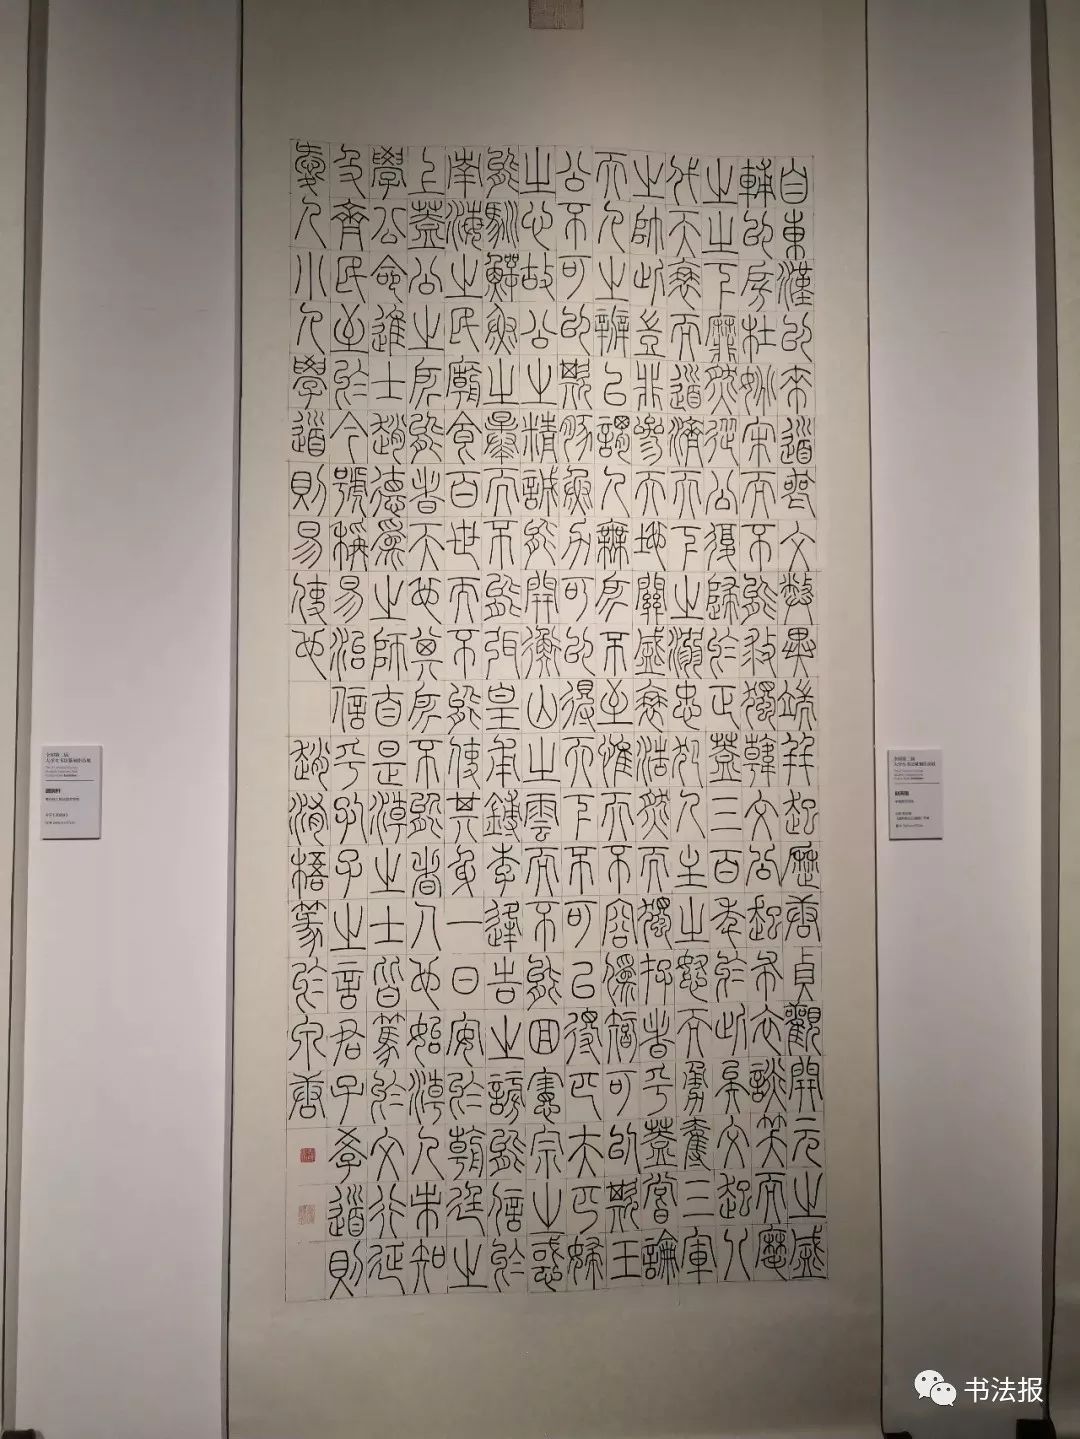 自東漢以來道喪文弊異端并起歷唐貞觀開元之盛
輔以房杜姚宋而不能救獨韓文公起布衣談笑而麾
之之下靡然從公復歸於正蓋三百年於此矣文起八
代天衰而道濟天下之溺忠犯人主之怒而勇奪三軍
之帥此豈非參天地關盛衰浩然而獨存者乎蓋嘗論
天人之辨以謂人無所不至惟天不容偽智可以欺王
公不可以欺豚魚力可以得天下不可以得匹夫匹婦
之心故公之精誠能開衡山之雲而不能回憲宗之惑
能馴鱷魚之暴而不能弭皇甫鎛李逢吉之謗能信於
南海之民廟食百世而不能使其身一日安於朝廷之
上蓋公之所能者天也其所不能者人也始潮人未知
學公命進士趙德為之師自是潮之士皆篤於文行延
及齊民至於今號稱易治信乎孔子之言君子學道則
愛人小人學道則易使也
趙梧篆於唐
全国第二届
大学生书法篆刻作品展
全国第二届
大学生书法篆刻作品展
书法报